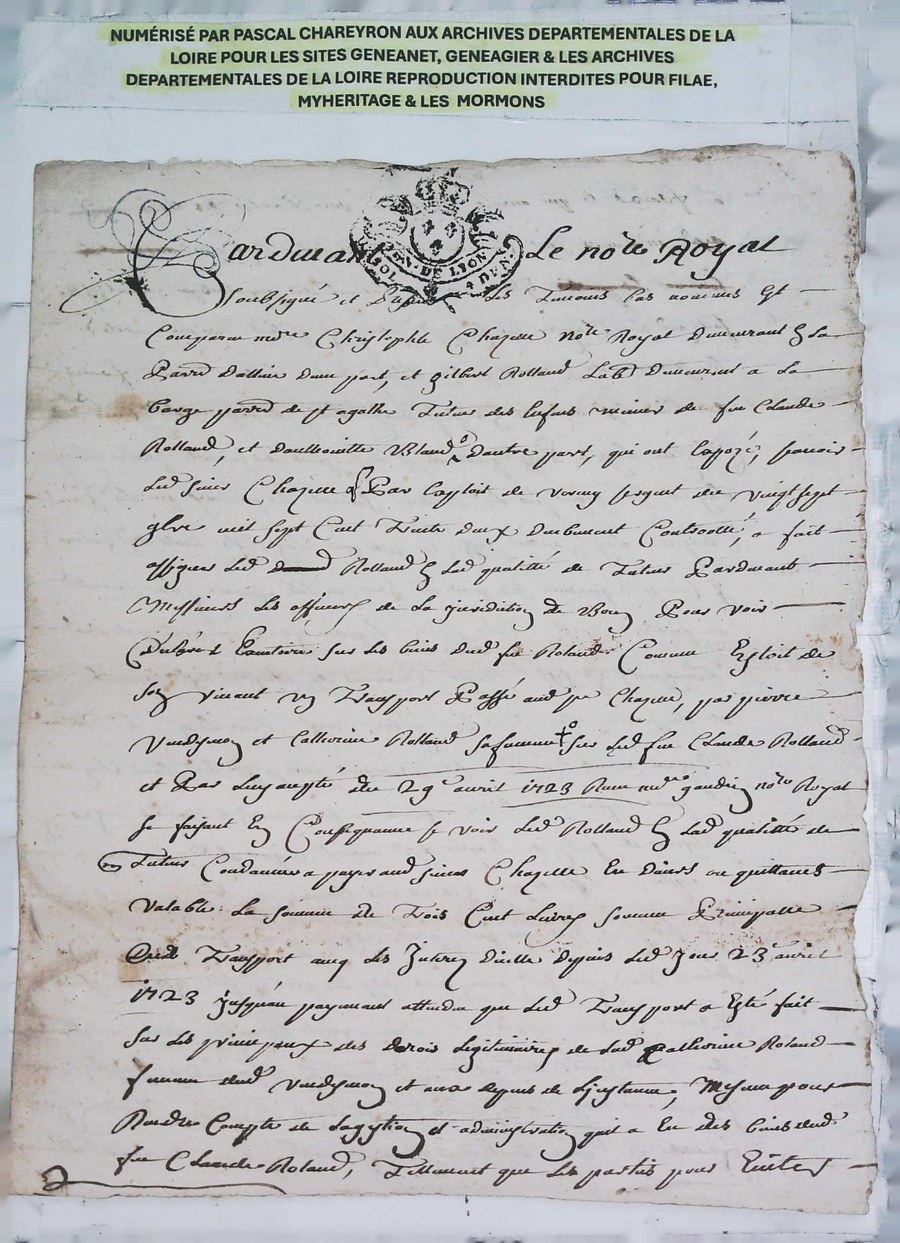 NUMÉRISÉ PAR PASCAL CHAREYRON AUX ARCHIVES DEPARTEMENTALES DE LA
LOIRE POUR LES SITES GENEANET, GENEAGIER & LES ARCHIVES
DEPARTEMENTALES DE LA LOIRE REPRODUCTION INTERDITES POUR FILAE,
MYHERITAGE & LES MORMONS
GEN. DE LYON
SOL 4 DEN.
Pardevant Le no.re Royal
Soubsigné et les Temoins bas nommés
Comparu me Christophle Chazelle no.re Royal demeurant
part, et gilbert Rolland Lab.r demeurant a La
barge parr. de st agathe Tuteur des Enfans mineur de feu Claude
Rolland, et d'autre part, qui ont Expozé, scavoir
Led. sieur Chazelle q Par Exploit de sergent du vingt sept
mil sept Cent Trente deux duement Controollé, a fait
assigner Led. Rolland En lad. qualitté de Tuteur Pardevant
Messieurs Les officiers de La jurisdiction de Pour voir
Executoire sur Les biens dud. feu Roland Comme Exploit de
vivant un Transport Passé aud. sr Chazelle, par pierre
et Catherine Rolland sa femme sur Led. feu Claude Rolland
et Par du 29e avril 1723 Receu me no.re Royal
se faisant En Consequence se voir Led. Rolland En Lad. qualitté de
Tuteur Condamner a payer aud. sieur Chazelle En deniers ou quittances
valable La somme de Trois Cent Livres somme Principalle
dud. Transport avec Les Interets d'icelle depuis Led. jour 23e avril
1723 jusquau payement attendu que Led. Transport a Esté fait
sur Les principaux des droits Legitimaires de Lad. Catherine Roland
femme dud. et aux depens de L'instance, pour
Rendre Compte de La gestion et administration quil a Eu des biens dud.
feu Claude Roland, Tellement que Les parties pour Eviter